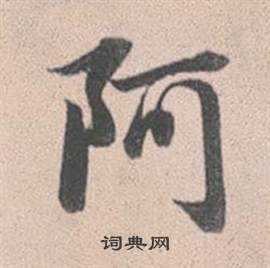 阿
词典网